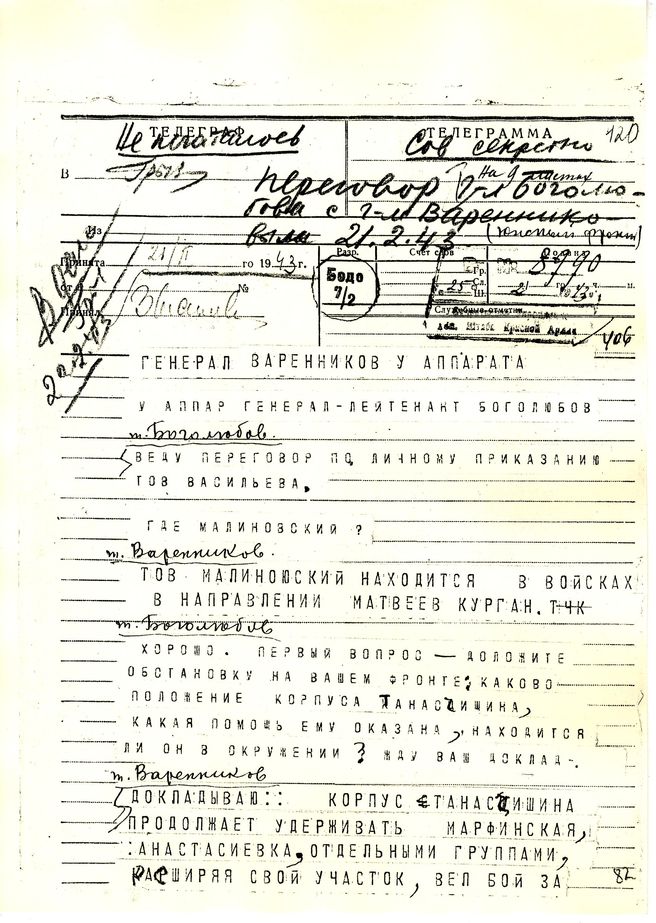 ТЕЛЕГРАФ
ТЕЛЕГРАММА
120
Не печаталось
Сов секретно
на 9 листах
В
Переговор г-л Боголю-
бова с г-м Вареннико-
Из
вым 21.2.43
(Южный фронт)
Принята
21/II
го 1943 г.
Бодо
7/2
Разр.
Счет слов
8990
от
№
25
Принял
Служебные отметки
Штаба Красной Армии
406
ГЕНЕРАЛ ВАРЕННИКОВ У АППАРАТА
У АППАР ГЕНЕРАЛ-ЛЕЙТЕНАНТ БОГОЛЮБОВ
т. Боголюбов.
ВЕДУ ПЕРЕГОВОР ПО ЛИЧНОМУ ПРИКАЗАНИЮ
ТОВ ВАСИЛЬЕВА.
ГДЕ МАЛИНОВСКИЙ ?
т. Варенников.
ТОВ МАЛИНОЮСКИЙ НАХОДИТСЯ В ВОЙСКАХ
В НАПРАВЛЕНИИ МАТВЕЕВ КУРГАН. ТЧК
т. Боголюбов
ХОРОШО. ПЕРВЫЙ ВОПРОС — ДОЛОЖИТЕ
ОБСТАНОВКУ НА ВАШЕМ ФРОНТЕ; КАКОВО
ПОЛОЖЕНИЕ КОРПУСА ТАНАСЧИШИНА,
КАКАЯ ПОМОЩЬ ЕМУ ОКАЗАНА, НАХОДИТСЯ
ЛИ ОН В ОКРУЖЕНИИ ? ЖДУ ВАШ ДОКЛАД-.
т. Варенников
ДОКЛАДЫВАЮ:: КОРПУС ТАНАСЧИШИНА
ПРОДОЛЖАЕТ УДЕРЖИВАТЬ МАРФИНСКАЯ,
АНАСТАСИЕВКА, ОТДЕЛЬНЫМИ ГРУППАМИ,
РАСШИРЯЯ СВОЙ УЧАСТОК, ВЕЛ БОЙ ЗА
82